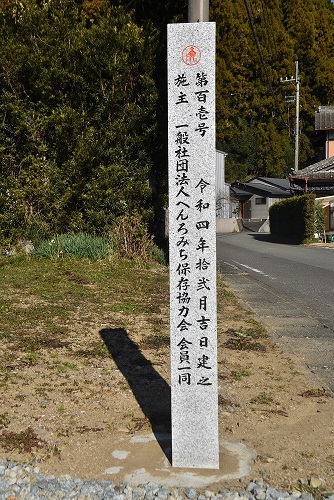 第百壱号 令和四年拾弐月吉日建之
施主 一般社団法人へんろみち保存協力会 会員一同